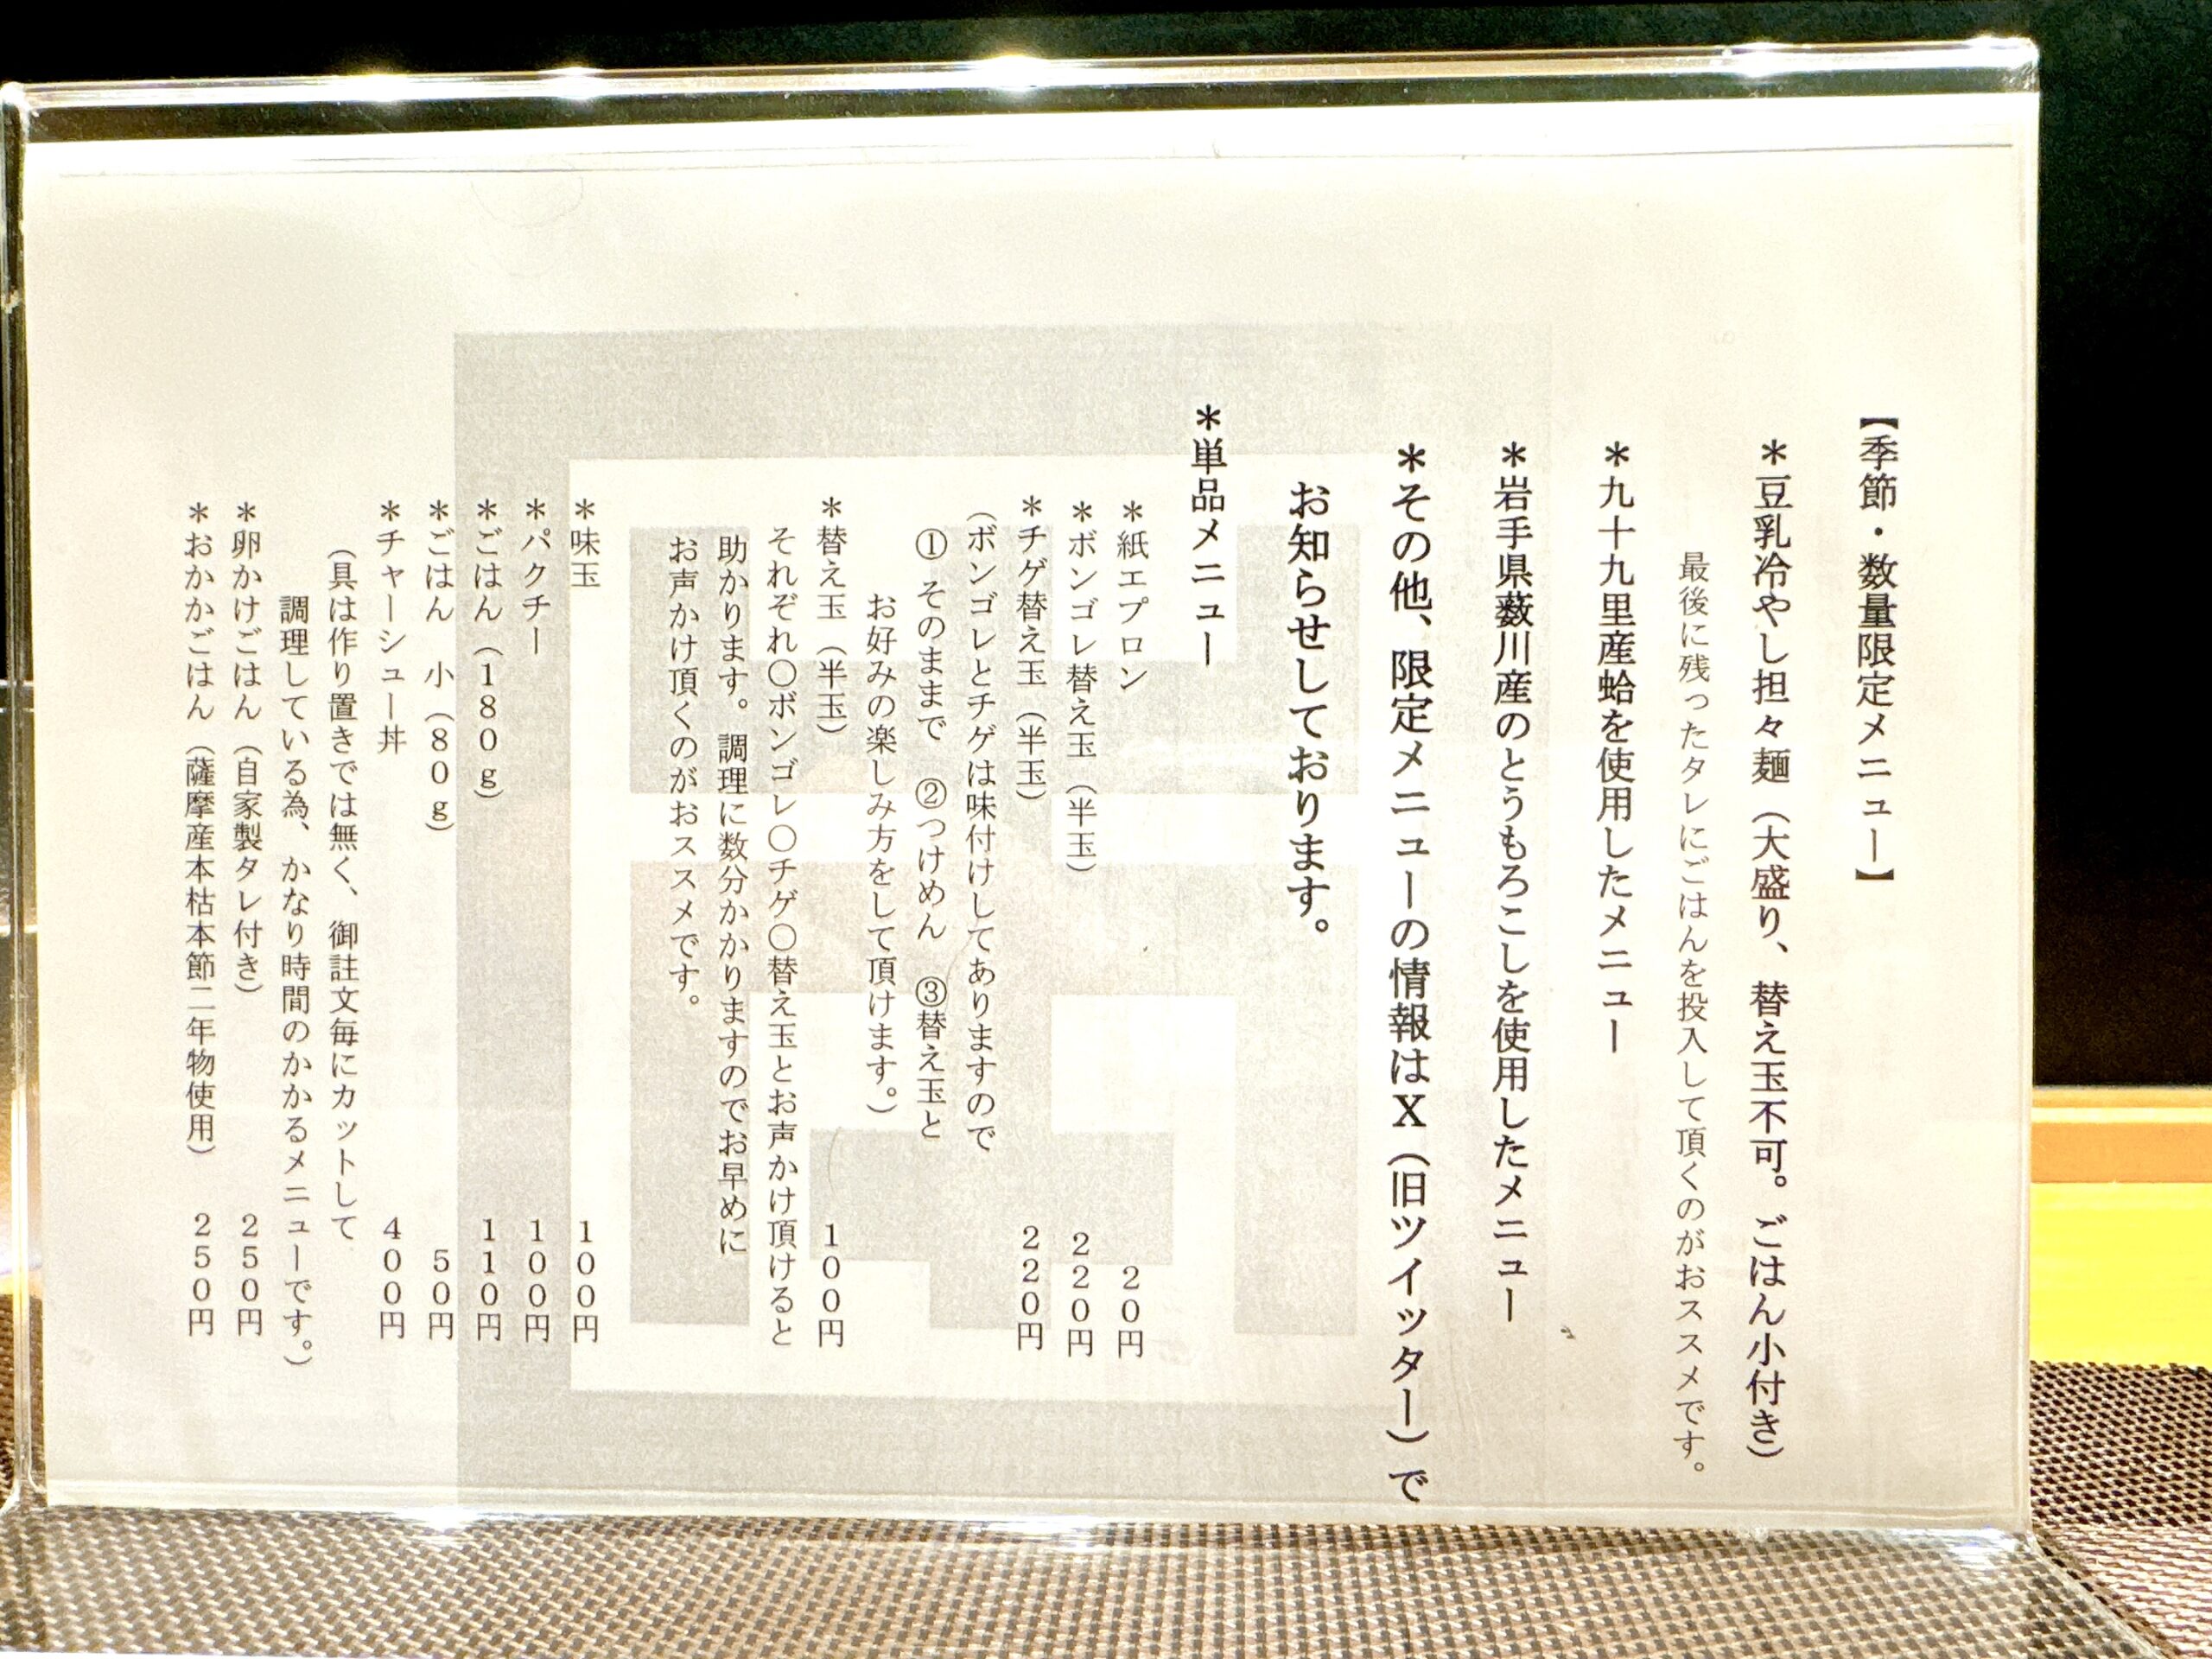 【季節・数量限定メニュー】
＊豆乳冷やし担々麺（大盛り、替え玉不可。ごはん小付き）
最後に残ったタレにごはんを投入して頂くのがおススメです。
＊九十九里産蛤を使用したメニュー
＊岩手県藪川産のとうもろこしを使用したメニュー
＊その他、限定メニューの情報はX（旧ツイッター）で
お知らせしております。
＊単品メニュー
＊紙エプロン　20円
＊ボンゴレ替え玉（半玉）　220円
＊チゲ替え玉（半玉）　220円
（ボンゴレとチゲは味付けしてありますので
①そのままで　②つけめん　③替え玉と
お好みの楽しみ方をして頂けます。）
＊替え玉（半玉）　100円
それぞれ〇ボンゴレ〇チゲ〇替え玉とお声かけ頂けると
助かります。調理に数分かかりますのでお早めに
お声かけ頂くのがおススメです。
＊味玉　100円
＊パクチー　100円
＊ごはん（180g）　110円
＊ごはん　小（80g）　50円
＊チャーシュー丼　400円
（具は作り置きでは無く、御註文毎にカットして
調理している為、かなり時間のかかるメニューです。）
＊卵かけごはん（自家製タレ付き）　250円
＊おかかごはん（薩摩産本枯本節二年物使用）　250円